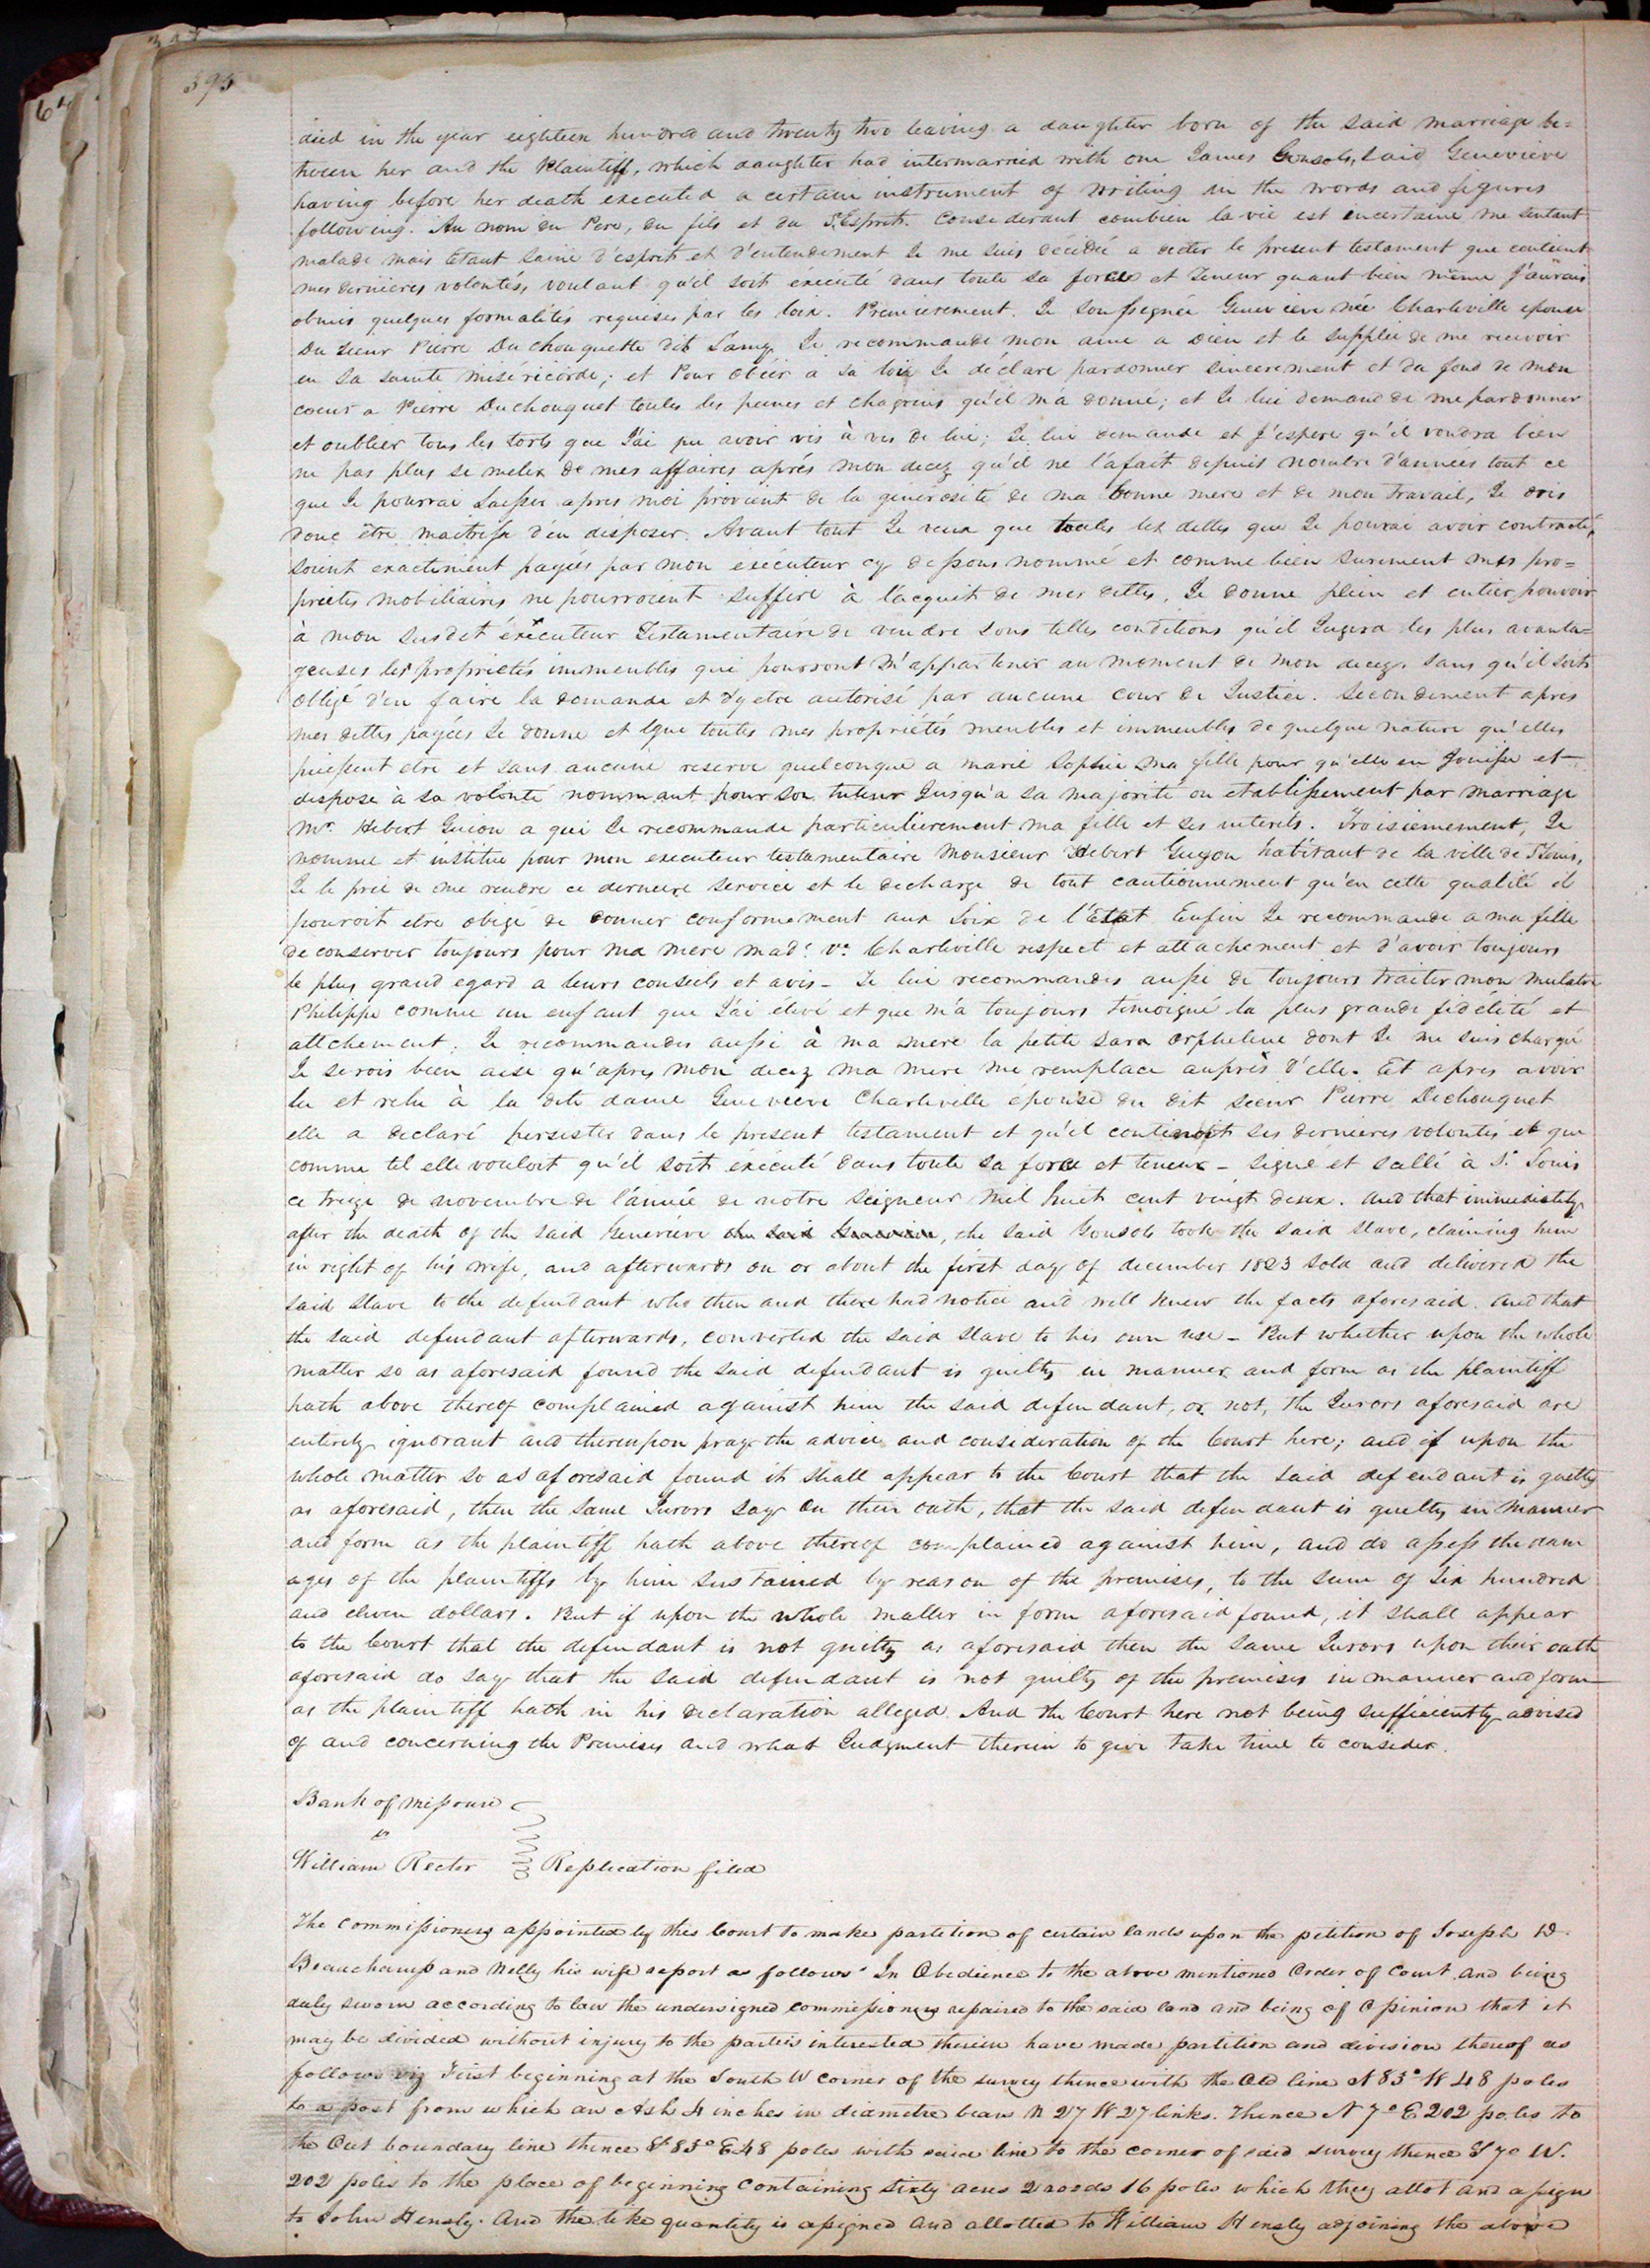 395
died in the year eighteen hundred and twenty two leaving a daughter born of the said marriage be=
tween her and the Plaintiff, which daughter had intermarried with one James Gonsols, said Genevieve
having before her death executed a certain instrument of writing in the words and figures
following. Au nom du Pere, du fils et du St Esprit. Considerant combien la vie est incertaine me sentant
malade mais etant saine d'esprit et d'entendement Je me suis décidée a dicter le present testament que contient
mes dernières volontés, voulant qu'il soit éxécuté dans toute sa force et teneur quant bien même J'aurais
obmis quelques formalités requises par les loix. Premierement. Je Soussignée Genevieve née Charleville epouse
Du Sieur Pierre Duchouquette dit Lamy, Je recommande mon ame a Dieu et le supplie de me recevoir
en sa sainte miséricorde; et Pour obéir a sa loix Je déclare pardonner sincerement et du fond de mon
coeur a Pierre Duchouquet toutes les peines et chagrins qu'il m'a donné; et Je lui demande de me pardonner
et oublier tous les torts que J'ai pu avoir vis à vis de lui; Je lui demande et J'espere qu'il voudra bien
ne pas plus se meler de mes affaires aprés mon decez qu'il ne l'a fait depuis nombre d'années tout ce
que Je pourrai Laisser apres moi provient de la générosité de ma bonne mere et de mon travail, Je dois
donc être maitresse d'en disposer. Avant tout Je veux que toutes les dettes que Je pourai avoir contracté,
soient exactement payées par mon éxécuteur cy dessous nommé et comme bien surement mes pro=
prietés mobiliaires ne pourroient suffire à l'acquit de mes dettes, Je donne plein et entier pouvoir
à mon susdit éxécuteur Testamentaire de vendre sous telles conditions qu'il Jugera les plus avanta=
geuses les proprietés immeubles qui pourront m'appartenir au moment de mon decez, sans qu'il soit
obligé d'en faire la demande et d'y etre autorisé par aucune cour de Justice. Secondement apres
mes dettes payées Je donne et lque toutes mes propriétés meubles et immeubles de quelque nature qu'elles
puissent etre et sans aucune reserve quelconque a marie Sophie ma fille pour qu'elle en Jouisse et
dispose à sa volonté nommant pour son tuteur Jusqu'a sa majorité ou etablissement par marriage
Mr. Hebert Guion a qui Je recommande particulierement ma fille et ses interets. Troisiemement, Je
nomme et institue pour mon executeur testamentaire Monsieur Hebert Guyon habitant de la ville de St Louis,
Je le prie de me rendre ce derniere service et le decharge de tout cautionnement qu'en cette qualité il
pouroit etre obigé de donner conformement aux Loix de l'Etat Enfin Je recommande a ma fille
de conserver toujours pour ma mere made. Ve. Charleville respect et attachement et d'avoir toujours
le plus grand egard a leurs conseils et avis - Je lui recommandes aussi de toujours traiter mon mulatre
Philippe comme un enfant que J'ai elevé et que m'a toujours temoigné la plus grande fidélité et
attchement. Je recommandes aussi à ma mere la petite Sara orpheline dont Je me suis chargé
Je serois bien aise qu'apres mon decez ma mere me remplace auprès d'elle. Et apres avoir
lu et relu à la dite dame Genevieve Charleville épouse du dit sieur Pierre Dechouquet
elle a declaré persister dans le present testament et qu'il contenoit ses dernieres volontés et que
comme tel elle vouloit qu'il soit éxécuté dans toute sa force et teneur - signé et sellé à St. Louis
ce treize de novembre de l'année de notre Seigneur Mil huit cent vingt deux. And that immediately
after the death of the said Genevieve the said Genevieve, the said Gonsols took the said slave, claiming him
in right of his wife, and afterwards on or about the first day of december 1823 sold and delivered the
said slave to the defendant who then and there had notice and well knew the facts aforesaid. And that
the said defendant afterwards, converted the said slave to his own use - But whether upon the whole
matter so as aforesaid found the said defendant is guilty in manner and form as the plaintiff
hath above thereof complained against him the said defendant, or not, the Jurors aforesaid are
entirely ignorant and thereupon pray the advice and consideration of the Court here; and if upon the
whole matter so as aforesaid found it shall appear to the Court that the said defendant is guilty
as aforesaid, then the same Jurors say on their oath, that the said defendant is guilty in manner
and form as the plaintiff hath above thereof complained against him, and do assess the dam
ages of the plaintiffs by him sustained by reason of the premises, to the sum of six hundred
and eleven dollars. But if upon the whole matter in form aforesaid found, it shall appear
to the Court that the defendant is not guilty as aforesaid then the same Jurors upon their oath
aforesaid do say that the said defendant is not guilty of the premises in manner and form
as the plaintiff hath in his declaration alleged. And the Court here not being sufficiently advised
of and concerning the Premises and what Judgment therein to give take time to consider.
Bank of Missouri
vs
William Rector Replication filed
The Commissioners appointed by this Court to make partition of certain lands upon the petition of Joseph D.
Beauchamp and Nelly his wife report as follows "In Obedience to the above mentioned Order of Court and being
duly sworn according to law the undersigned commissioners repaired to the said land and being of opinion that it
may be divided without injury to the parties interested therein have made partition and division thereof as
follows viz First beginning at the South W corner of the survey thence with the Old line N 83° W 48 poles
to a post from which an Ash 4 inches in diametre bears N 27 W 27 links. Thence N 7° E 202 poles to
the Out boundary line thence S 83° E 48 poles with said line to the corner of said survey thence S 7° W.
202 poles to the place of beginning Containing sixty acres 2 roods 16 poles which they allot and assign
to John Hensly. And the like quantity is assigned and allotted to William Hensly adjoining the above